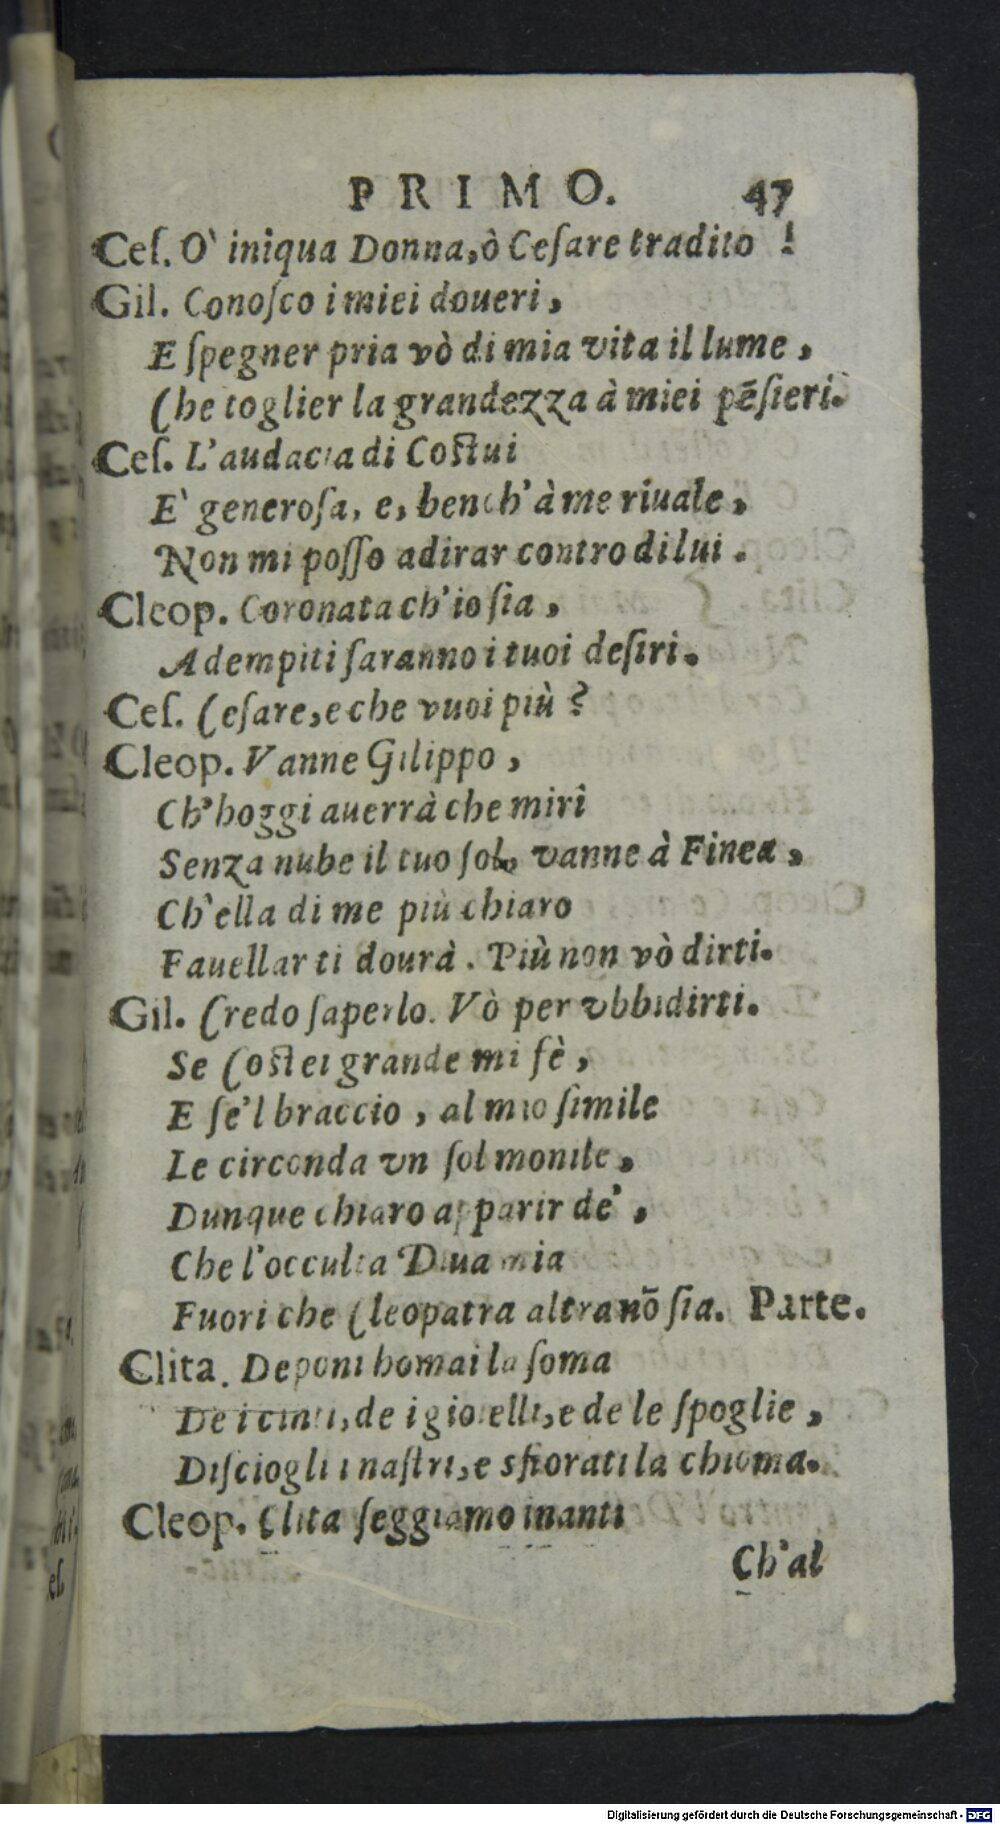 PRIMO. 47
Ceſ. O' iniqua Donna, ò Ceſare tradito !
Gil. Conoſco i miei doueri,
E ſpegner pria vò di mia vita il lume,
Che toglier la grandezza à miei pẽſieri.
Ceſ. L'audacia di Coſtui
E' generoſa, e, bench' à me riuale,
Non mi poſſo adirar contro di lui.
Cleop. Coronata ch'io ſia,
Adempiti ſaranno i tuoi deſiri.
Ceſ. Ceſare, e che vuoi più ?
Cleop. Vanne Gilippo,
Ch'hoggi auerrà che miri
Senza nube il tuo ſol, vanne à Finea,
Ch'ella di me più chiaro
Fauellar ti dourà. Più non vò dirti.
Gil. Credo ſaperlo. Vò per vbbidirti.
Se Coſtei grande mi fè,
E ſe'l braccio, al mio ſimile
Le circonda vn ſol monile,
Dunque chiaro apparir de',
Che l'occulta Diua mia
Fuori che Cleopatra altra nõ ſia. Parte.
Clita. Deponi homai la ſoma
De i cinti, de i gioielli, e de le ſpoglie,
Diſciogli i naſtri, e sfiorati la chioma.
Cleop. Clita ſeggiamo inanti
Ch'al
Digitalisierung gefördert durch die Deutsche Forschungsgemeinschaft - DFG